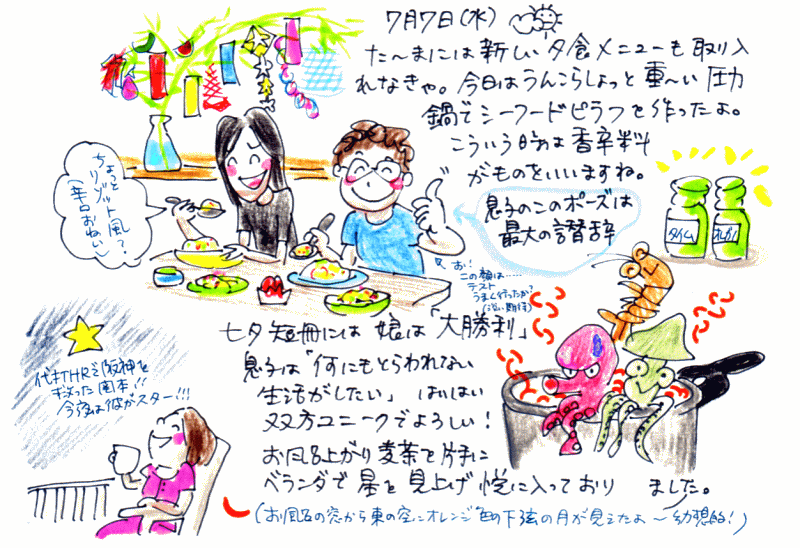 7月7日(水)
た〜まには新しい夕食メニューも取り入
れなきゃ。今日はうんこらしょっと重〜い圧力
鍋でシーフードピラフを作ったよ。
こういう時は香辛料
がものをいいますね。
ちょっと
リゾット風?
(辛口おねい)
息子のこのポーズは
最大の讃辞
タイム
オレガノ
お!
この顔は……
テスト
うまく行ったか?
(淡い期待)
七夕短冊には 娘は「大勝利」
息子は「何にもとらわれない
生活がしたい」 はいはい
双方ユニークでよろしい!
お風呂上がり麦茶を片手に
ベランダで星を見上げ悦に入っており ました。
(お風呂の窓から東の空にオレンジ色の下弦の月が見えたよ〜幻想的!)
代打THRで阪神を
救った関本!!
今夜は彼がスター!!!